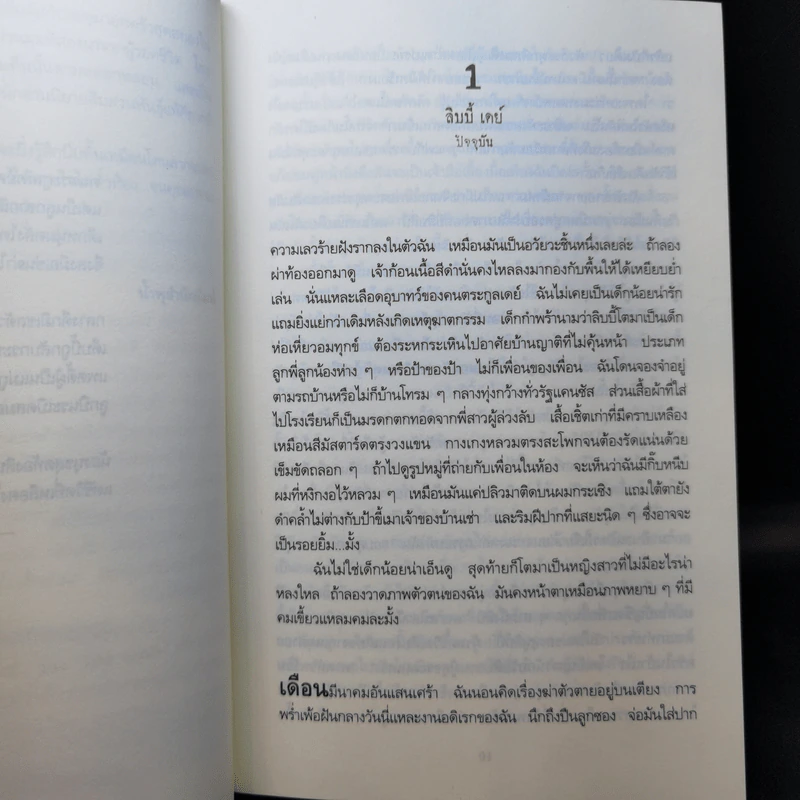 1
ลิบบี้ เดย์
ปัจจุบัน
ความเลวร้ายฝังรากลงในตัวฉัน เหมือนมันเป็นอวัยวะชิ้นหนึ่งเลยล่ะ ถ้าลอง
ผ่าท้องออกมาดู เจ้าก้อนเนื้อสีดำนั่นคงไหลลงมากองกับพื้นให้ได้เหยียบย่ำ
เล่น นั่นแหละเลือดอุบาทว์ของคนตระกูลเดย์ ฉันไม่เคยเป็นเด็กน้อยน่ารัก
แถมยิ่งแย่กว่าเดิมหลังเกิดเหตุฆาตกรรม เด็กกำพร้านามว่าลิบบี้โตมาเป็นเด็ก
ห่อเหี่ยวอมทุกข์ ต้องระหกระเหินไปอาศัยบ้านญาติที่ไม่คุ้นหน้า ประเภท
ลูกพี่ลูกน้องห่าง ๆ หรือป้าของป้า ไม่ก็เพื่อนของเพื่อน ฉันโดนจองจำอยู่
ตามรถบ้านหรือไม่ก็บ้านโทรม ๆ กลางทุ่งกว้างทั่วรัฐแคนซัส ส่วนเสื้อผ้าที่ใส่
ไปโรงเรียนก็เป็นมรดกตกทอดจากพี่สาวผู้ล่วงลับ เสื้อเชิ้ตเก่าที่มีคราบเหลือง
เหมือนสีมัสตาร์ดตรงวงแขน กางเกงหลวมตรงสะโพกจนต้องรัดแน่นด้วย
เข็มขัดถลอก ๆ ถ้าไปดูรูปหมู่ที่ถ่ายกับเพื่อนในห้อง จะเห็นว่าฉันมีกิ๊บหนีบ
ผมที่หงิกงอไว้หลวม ๆ เหมือนมันแค่ปลิวมาติดบนผมกระเซิง แถมใต้ตายัง
ดำคล้ำไม่ต่างกับป้าขี้เมาเจ้าของบ้านเช่า และริมฝีปากที่แสยะนิด ๆ ซึ่งอาจจะ
เป็นรอยยิ้ม...มั้ง
ฉันไม่ใช่เด็กน้อยน่าเอ็นดู สุดท้ายก็โตมาเป็นหญิงสาวที่ไม่มีอะไรน่า
หลงใหล ถ้าลองวาดภาพตัวตนของฉัน มันคงหน้าตาเหมือนภาพหยาบ ๆ ที่มี
คมเขี้ยวแหลมคมละมั้ง
เดือนมีนาคมอันแสนเศร้า ฉันนอนคิดเรื่องฆ่าตัวตายอยู่บนเตียง การ
พร่ำเพ้อฝันกลางวันนี่แหละงานอดิเรกของฉัน นึกถึงปืนลูกซอง จ่อมันใส่ปาก